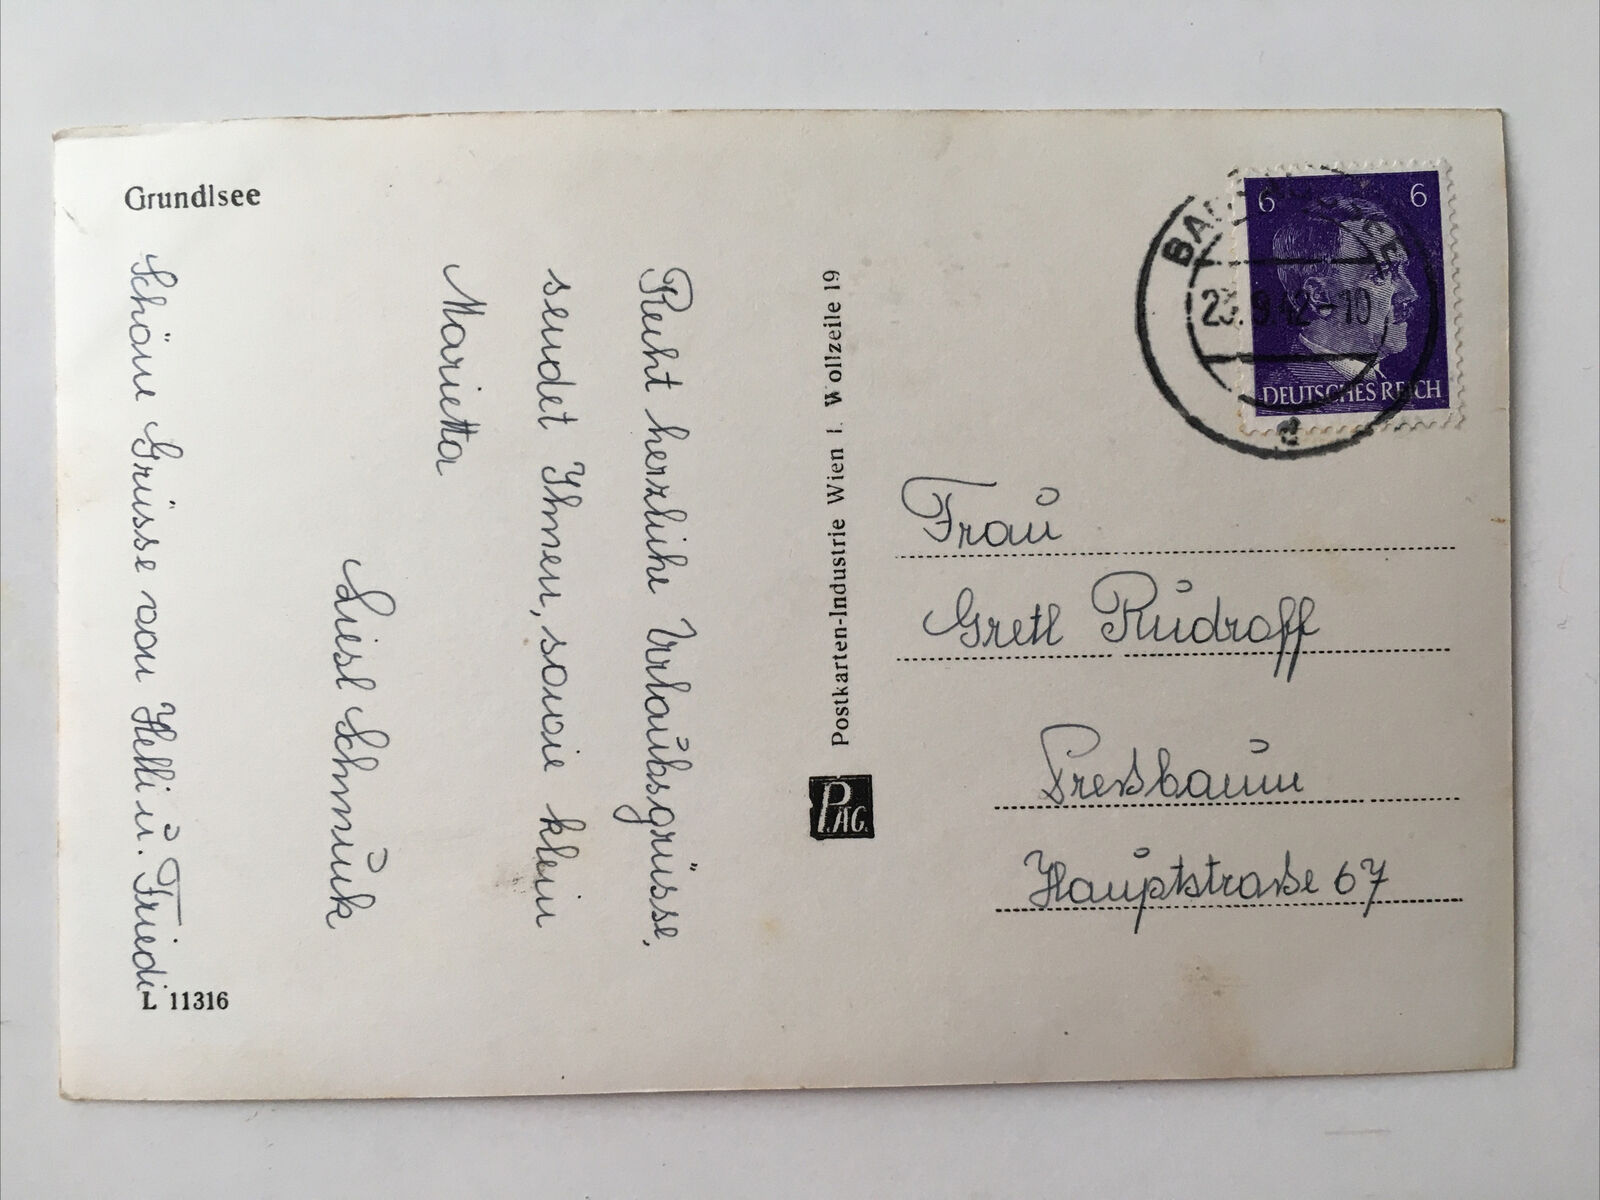 Grundlsee
Recht herzliche Urlaubsgrüsse,
sendet Ihnen, sowie klein
Marietta
Liesl Schmuck
Schöne Grüsse von Helli u. Friedi
L 11316
Postkarten-Industrie Wien I. Wollzeile 19
PAG.
6 6
DEUTSCHES REICH
23.9.42-10
a
Frau
Gretl Rudroff
Preßbaum
Hauptstraße 67